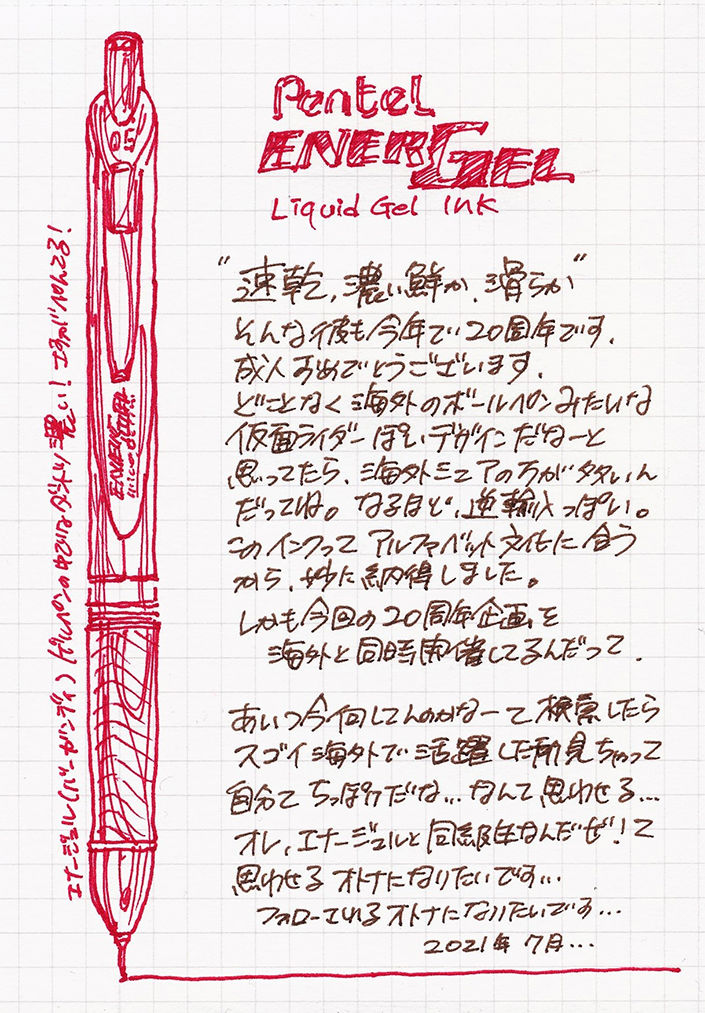 Pentel
ENERGEL
Liquid Gel INK
"速乾、濃い鮮か、滑らか"
そんな彼も今年で20周年です。
成人おめでとうございます。
どことなく海外のボールペンみたいな
仮面ライダーぽいデザインだなーと
思ってたら、海外シェアの方が多いん
だってね。なるほど、逆輸入っぽい。
このインクって アルファベット文化に合う
から、妙に納得しました。
しかも今回の20周年企画を
海外と同時開催してるんだって.
あいつ今何してんのかなーって検索したら
スゴイ海外で活躍した所見ちゃって
自分てちっぽけだな...なんて思わせる...
オレ、エナージェルと同級生なんだぜ!て
思わせるオトナになりたいです...
フォローされるオトナになりたいです...
2021年 7月...
05
ENERGEL
エナージェル(バーガンディ)(ゲルペンの中ではダントツ濃い!